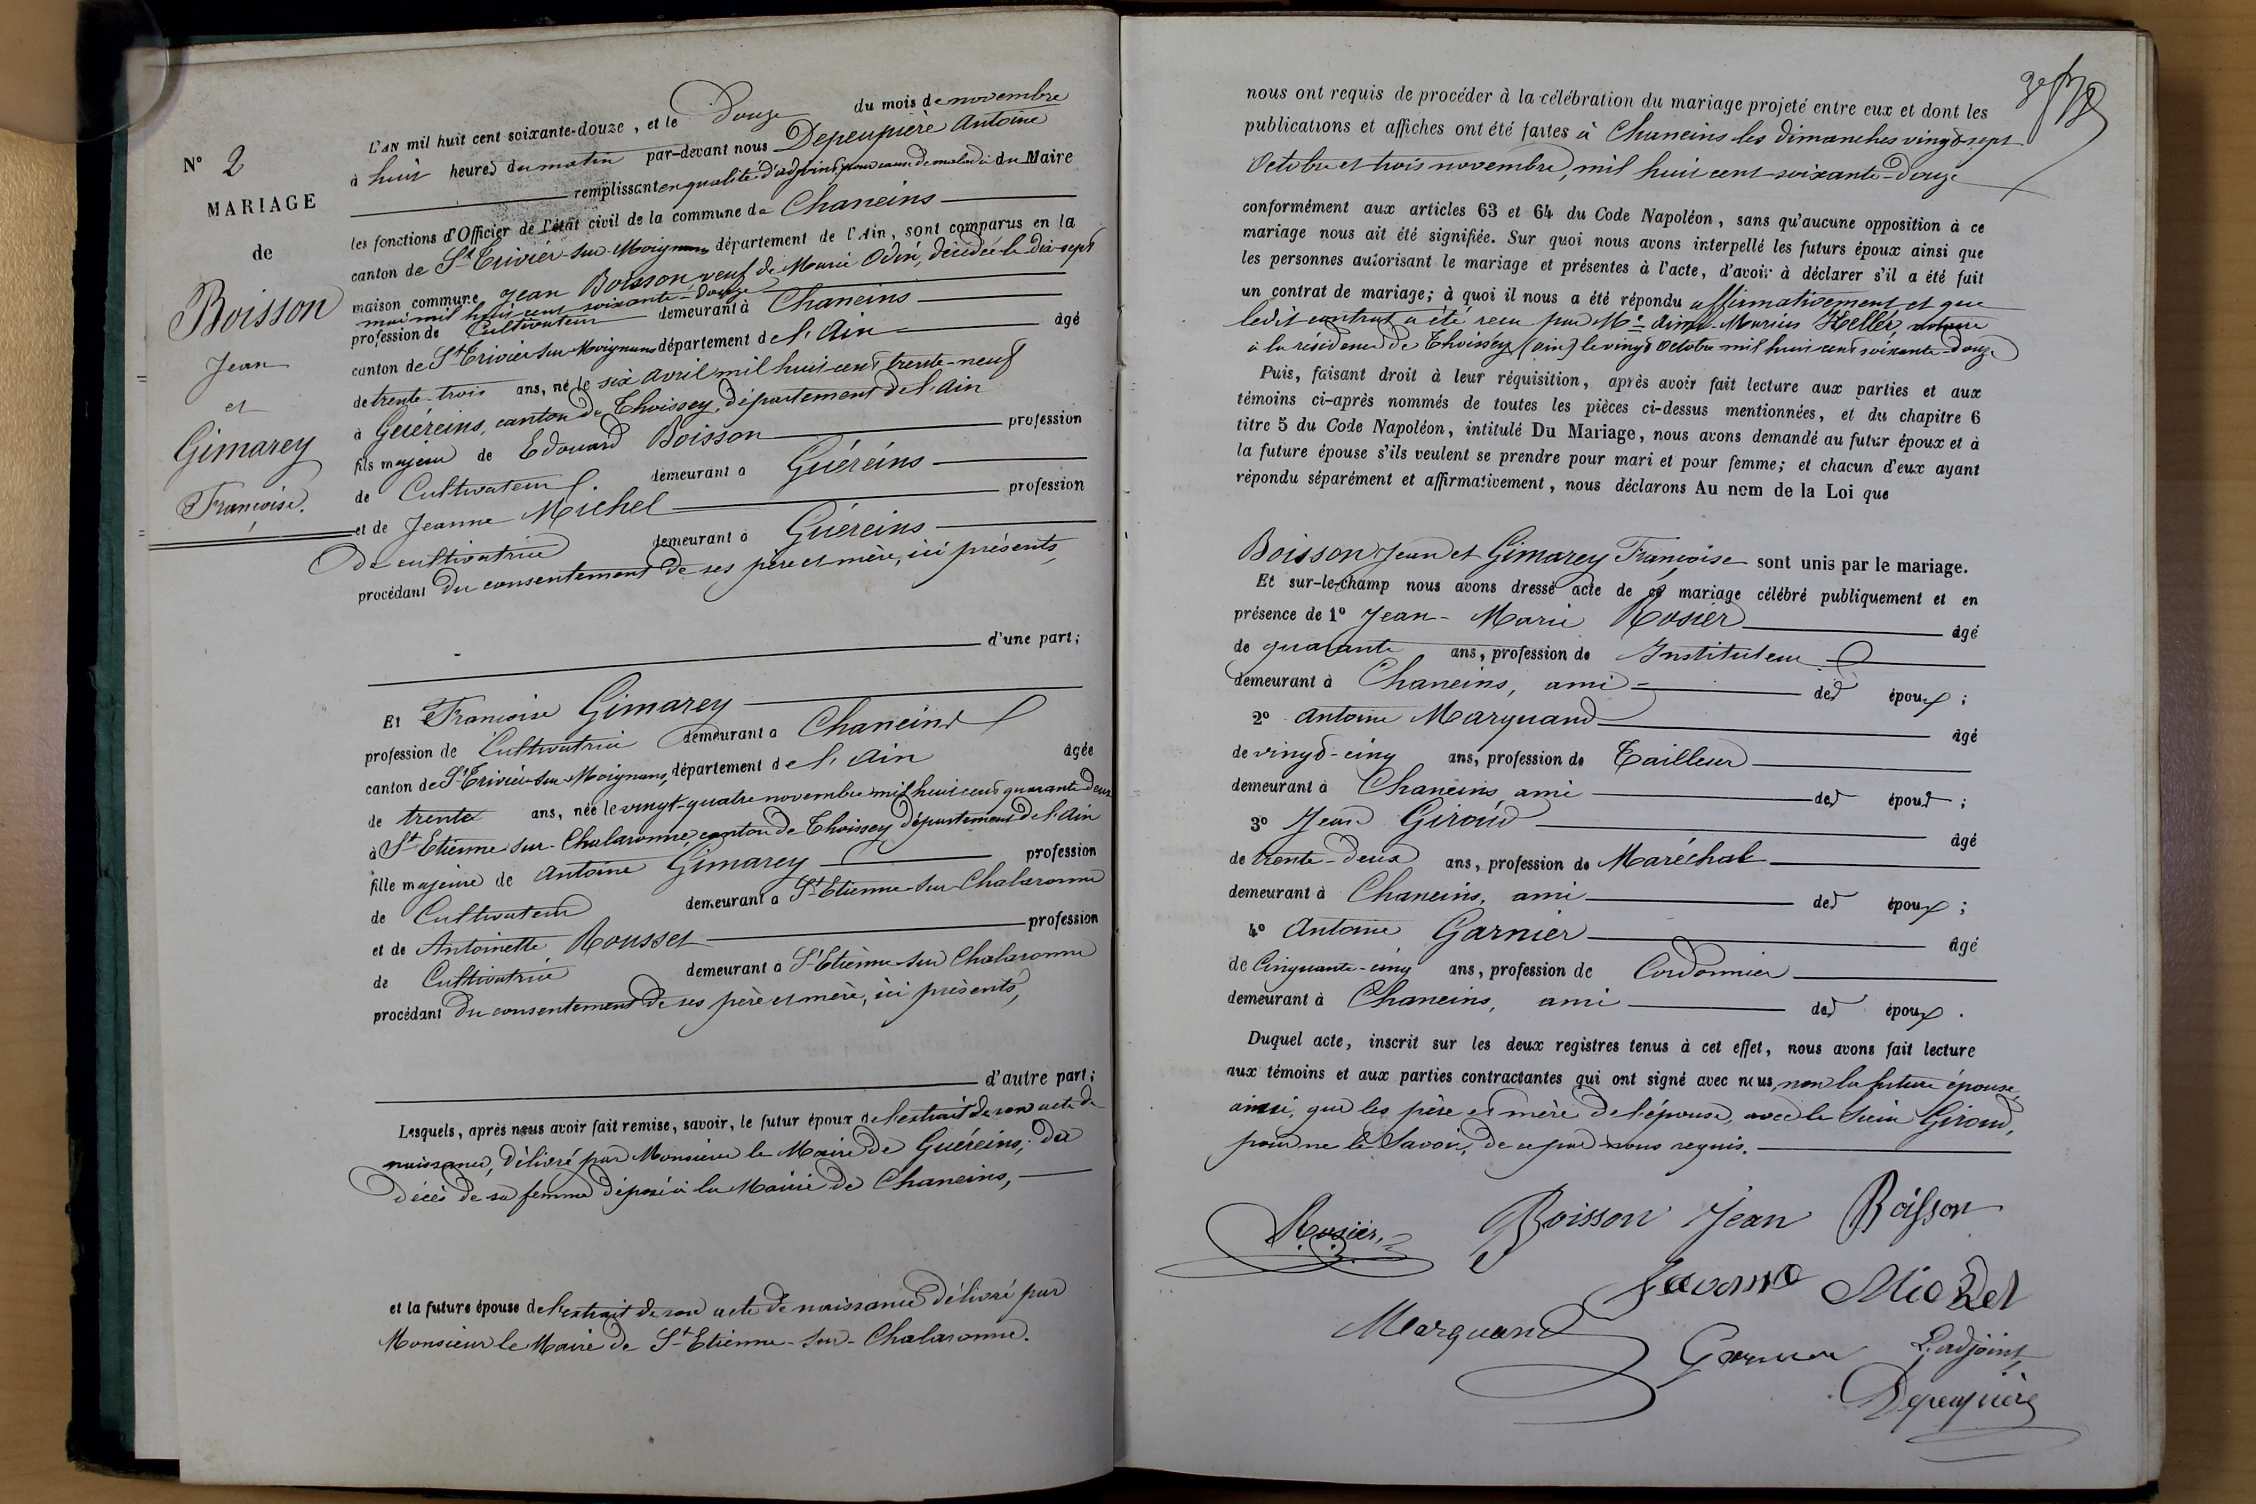 N° 2
MARIAGE
de
Boisson
Jean
et
Gimarey
Françoise.
L'AN mil huit cent soixante-douze, et le Douze du mois de novembre
à huit heures du matin par-devant nous Depeupière Antoine
remplissant en qualité d'adjoint pour cause de maladie du Maire
les fonctions d'Officier de l'état civil de la commune de Chaneins
canton de St Trivier-sur-Moignans département de l'Ain, sont comparus en la
maison commune Jean Boisson, veuf de Marie Odin, décédée le dix-sept
mai mil huit cent soixante-douze
profession de Cultivateur demeurant à Chaneins
canton de St Trivier sur Moignans département de l'Ain âgé
de trente-trois ans, né le six avril mil huit cent trente-neuf
à Guéreins, canton de Thoissey, département de l'Ain
fils majeur de Edouard Boisson profession
de Cultivateur demeurant à Guéreins
et de Jeanne Michel profession
de cultivatrice demeurant à Guéreins
procédant du consentement de ses père et mère, ici présents,
d'une part;
Et Françoise Gimarey
profession de Cultivatrice demeurant à Chaneins
canton de St Trivier-sur-Moignans, département de l'Ain âgée
de trente ans, née le vingt-quatre novembre mil huit cent quarante deux
à St Etienne sur-Chalaronne, canton de Thoissey département de l'Ain
fille majeure de Antoine Gimarey profession
de Cultivateur demeurant à St Etienne-sur Chalaronne
et de Antoinette Rousset profession
de Cultivatrice demeurant à St Etienne-sur Chalaronne
procédant du consentement de ses père et mère, ici présents,
d'autre part;
Lesquels, après nous avoir fait remise, savoir, le futur époux de l'extrait de son acte de
naissance, délivré par Monsieur le Maire de Guéreins; du
décès de sa femme déposé à la Mairie de Chaneins,
et la future épouse de l'extrait de son acte de naissance délivré par
Monsieur le Maire de St Etienne-sur-Chalaronne.
nous ont requis de procéder à la célébration du mariage projeté entre eux et dont les
publications et affiches ont été faites à Chaneins les dimanches vingt-sept
Octobre et trois novembre, mil huit cent soixante-douze
conformément aux articles 63 et 64 du Code Napoléon, sans qu'aucune opposition à ce
mariage nous ait été signifiée. Sur quoi nous avons interpellé les futurs époux ainsi que
les personnes autorisant le mariage et présentes à l'acte, d'avoir à déclarer s'il a été fait
un contrat de mariage; à quoi il nous a été répondu affirmativement et que
ledit contrat a été recu par Me Aimé-Marius Keller, notaire
à la résidence de Thoissey (Ain) le vingt Octobre mil huit cent soixante-douze
Puis, faisant droit à leur réquisition, après avoir fait lecture aux parties et aux
témoins ci-après nommés de toutes les pièces ci-dessus mentionnées, et du chapitre 6
titre 5 du Code Napoléon, intitulé Du Mariage, nous avons demandé au futur époux et à
la future épouse s'ils veulent se prendre pour mari et pour femme; et chacun d'eux ayant
répondu séparément et affirmativement, nous déclarons Au nom de la Loi que
Boisson Jean et Gimarey Françoise sont unis par le mariage.
Et sur-le-champ nous avons dressé acte de ce mariage célébré publiquement et en
présence de 1° Jean-Marie Rosier âgé
de quarante ans, profession de Instituteur
demeurant à Chaneins, ami des époux;
2° Antoine Marquand âgé
de vingt-cinq ans, profession de Tailleur
demeurant à Chaneins ami des époux;
3° Jean Giroud âgé
de trente-deux ans, profession de Maréchal
demeurant à Chaneins, ami des époux;
4° Antoine Garnier âgé
de Cinquante-cinq ans, profession de Cordonnier
demeurant à Chaneins, ami des époux.
Duquel acte, inscrit sur les deux registres tenus à cet effet, nous avons fait lecture
aux témoins et aux parties contractantes qui ont signé avec nous, non la future épouse,
ainsi, que les père et mère de l'épouse, avec le sieur Giroud,
pour ne le Savoir, de ce par nous requis.
Rosier, Boisson Jean Boisson
Michel
Marquand Garnier L'adjoint,
Depeupière